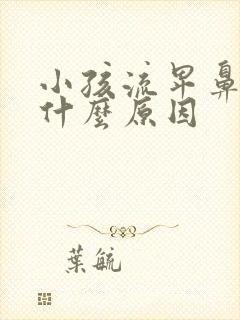 小孩流早鼻
什麼原因
葉毓